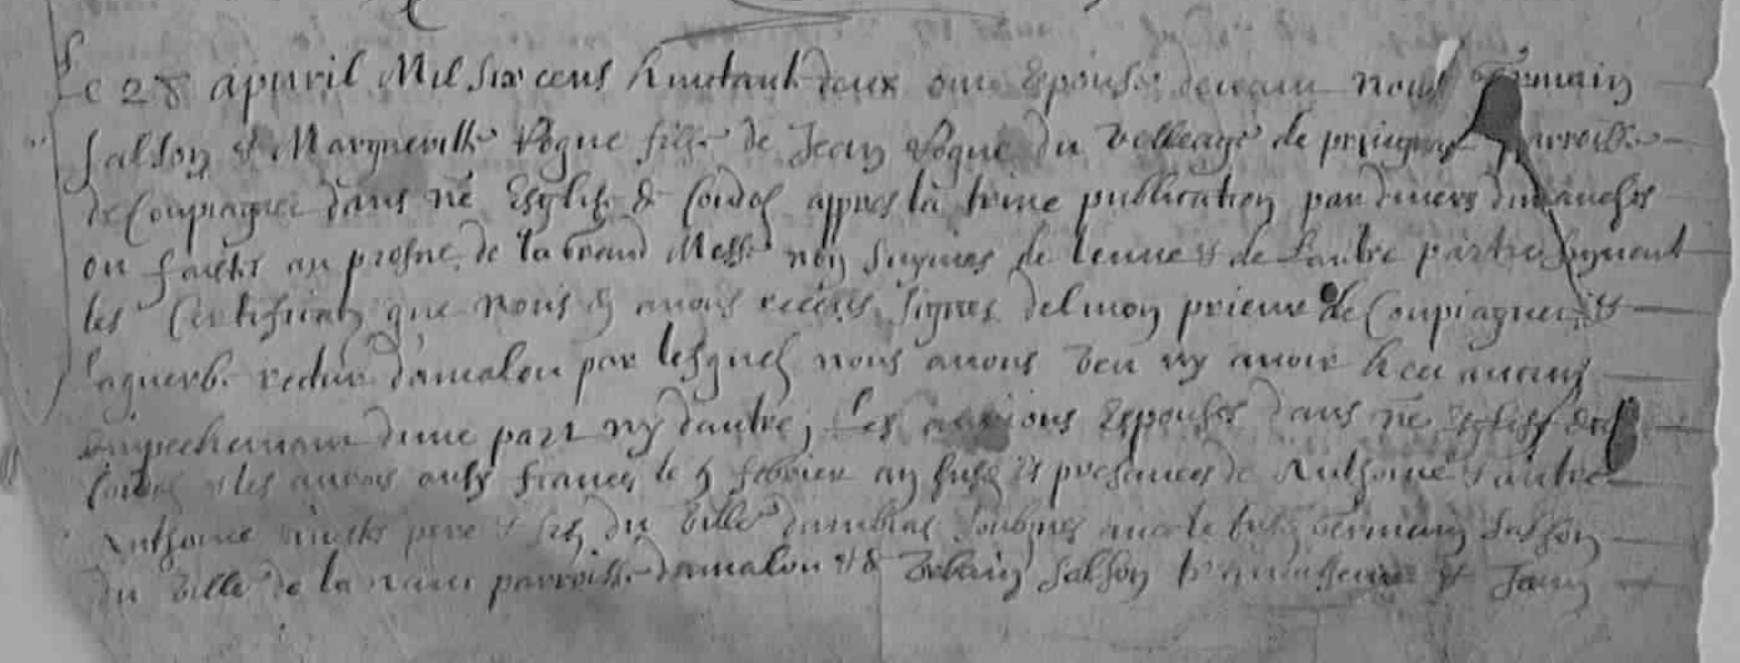 Le 28 apuril Mil six cens huictante deux ont Espousé deuant nous Germain
Salson et Margueritte Vogue fille de Jean Vogue du Velleage de parroisse
de Coupiaguet dans nre Esglise de Condol appres la trine publication par diuers dimanches
ou faictes au prosne de la Grand Messe de lenne et de lautre partie suyuent
les Certificats que nous en auons receus signes delmon prieur de Coupiaguet et
recteur damalou par lesquels nous auons veu ny auoir heu aucung
empechemant dune part ny dautre; Les auons Espouses dans nre Esglise de
Condol et les auons aussy fiances le 9 febvrier an susd et presances de Anthoine et autre
Anthoine pere et filz du Ville dambias soubnes auec le susd Germain Salson
du Ville de la parroisse damalou et de Vrbain Salson et Jean